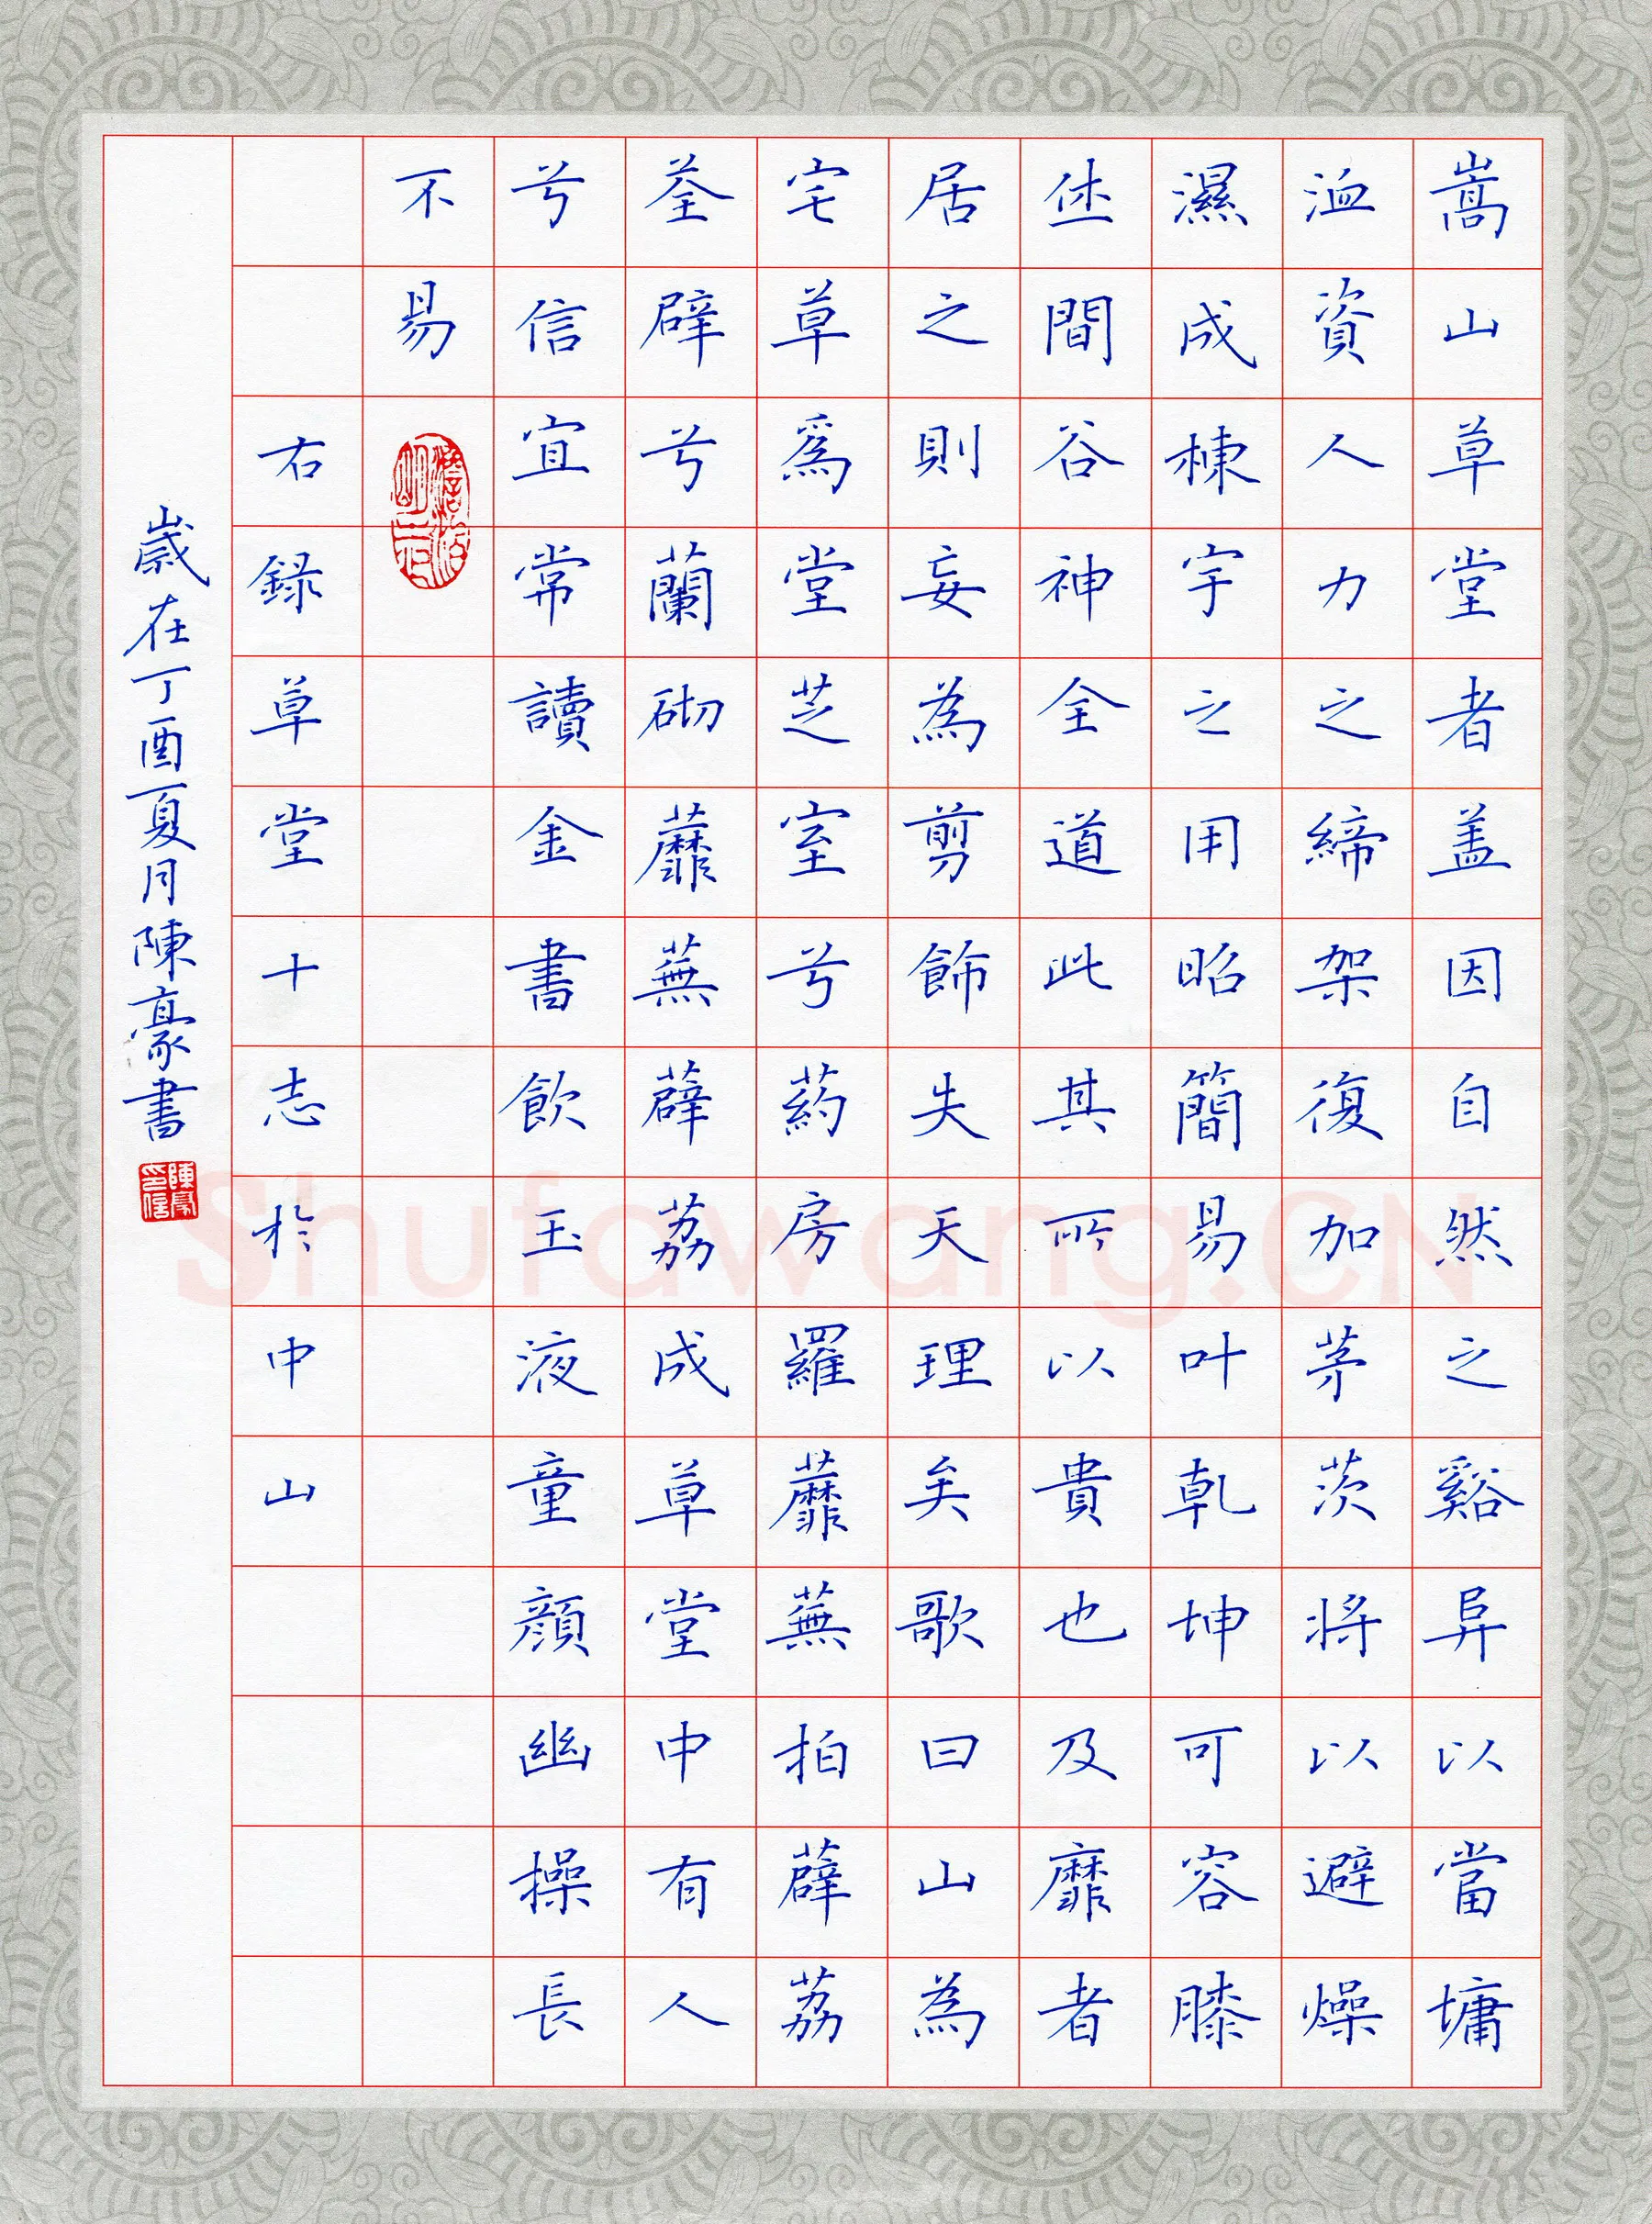 嵩山草堂者盖因自然之谿阜以當墉
洫資人力之締架復加茅茨將以避燥
濕成棟宇之用昭簡易叶乹坤可容膝
休間谷神全道此其所以貴也及靡者
居之則妄為剪飾失天理矣歌曰山為
宅草為堂芝室兮葯房羅蘼蕪拍薜荔
荃壁兮蘭砌蘼蕪薜荔成草堂中有人
兮信宜常讀金書飲玉液童顔幽操長
不易
右録草堂十志於中山
歲在丁酉夏月陳豪書
Shufawang.CN